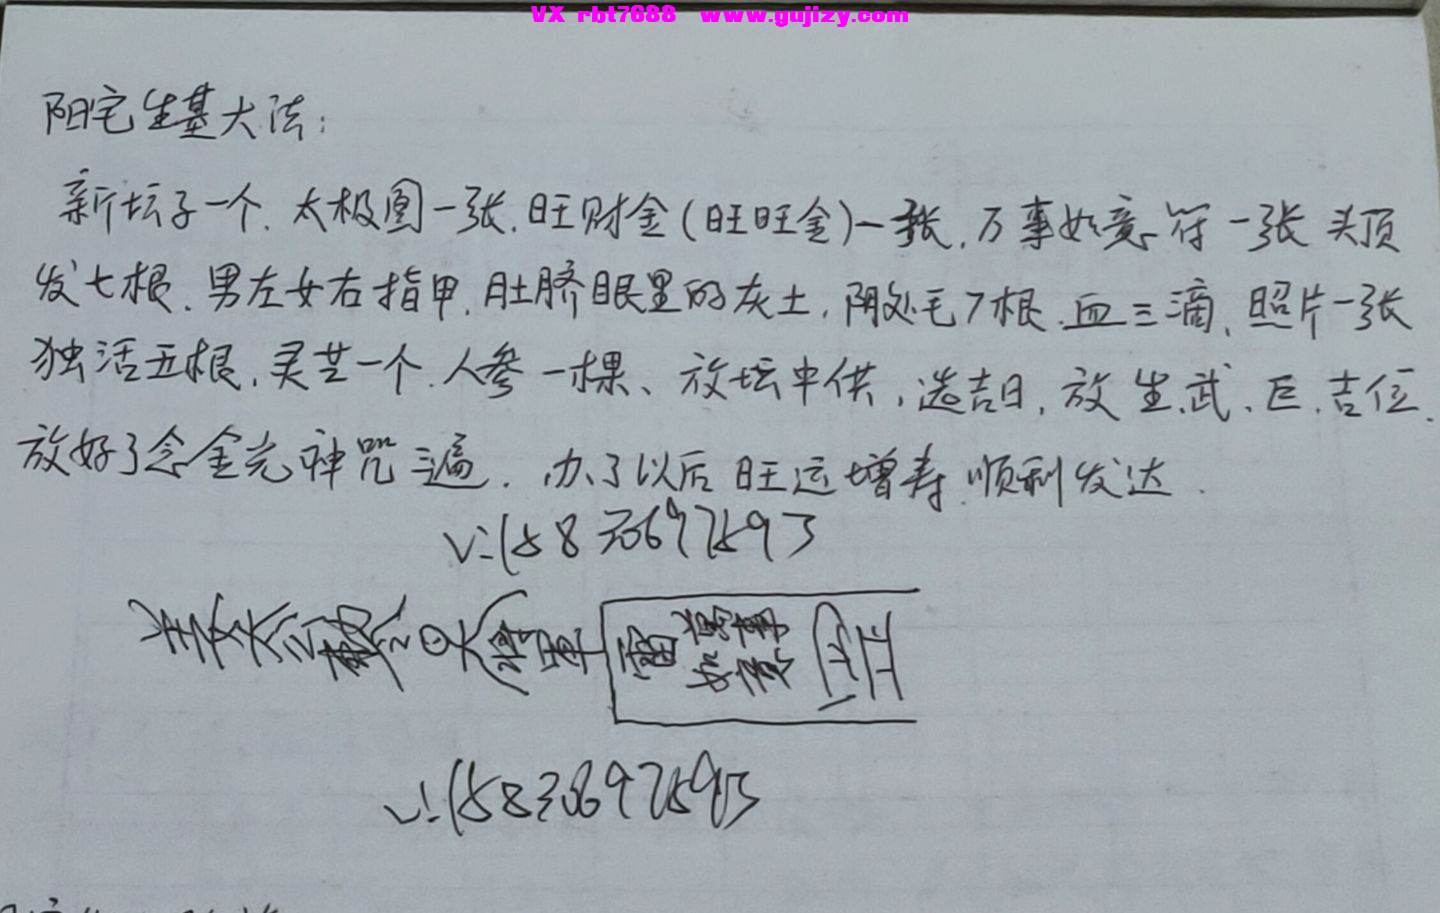 VX rbt7688 www.gujizy.com
阳宅生基大法：
新坛子一个. 太极图一张. 旺财金(旺旺金)一张. 万事如意符一张 头顶
发七根、男左女右指甲. 肚脐眼里的灰土. 阴处毛7根. 血三滴、照片一张
独活五根. 灵芝一个. 人参一棵、放坛中供, 选吉日, 放生.武、巨.吉位.
放好了念金光神咒三遍. 办了以后旺运增寿.顺利发达.
V:15836697593
V:15836697593